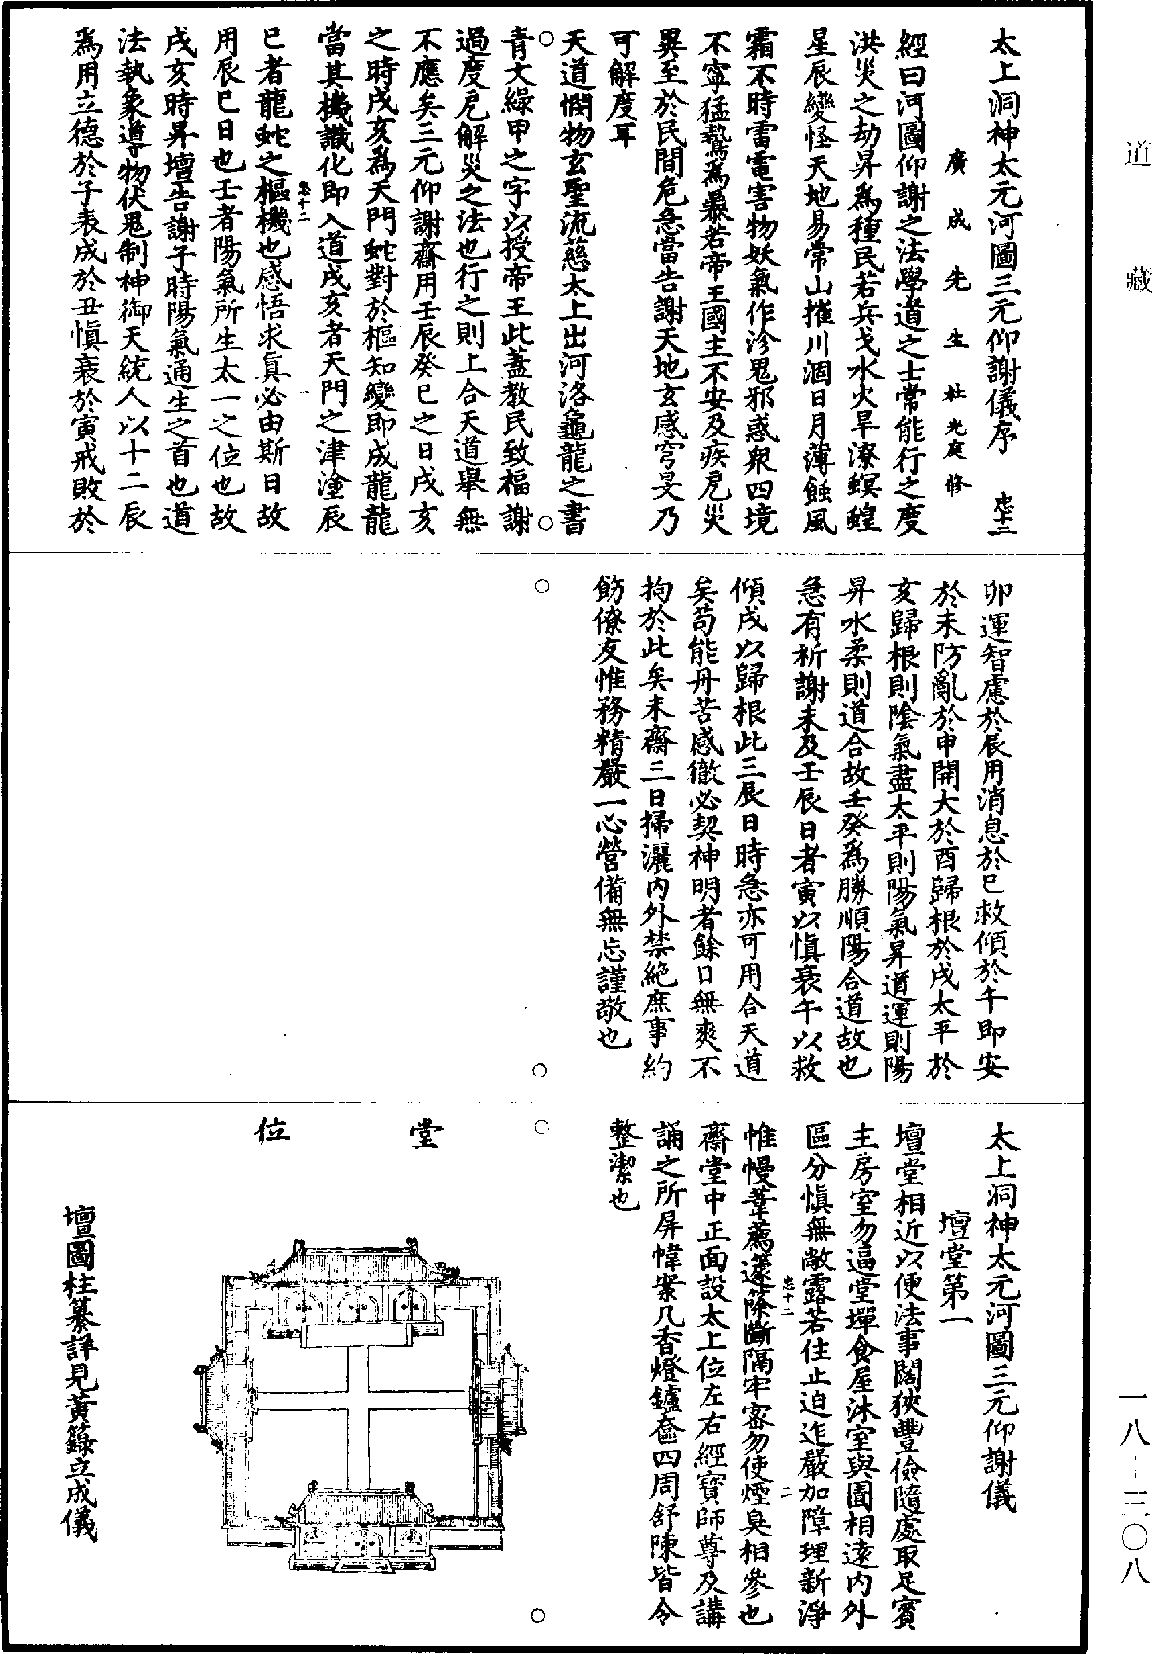 道藏
一八—三〇八
太上洞神太元河圖三元仰謝儀序 忠十二
廣成先生杜光庭修
經曰河圖仰謝之法學道之士常能行之度
洪災之劫昇為種民若兵戈水火旱潦螟蝗
星辰變怪天地易常山摧川涸日月薄蝕風
霜不時雷電害物妖氣作沴鬼邪惑衆四境
不寧猛鷙為暴若帝王國主不安及疾厄災
異至於民間危急當告謝天地玄感穹旻乃
可解度耳
天道憫物玄聖流慈太上出河洛龜龍之書
青文綠甲之字以授帝王此蓋教民致福謝
過度厄解災之法也行之則上合天道舉無
不應矣三元仰謝齋用壬辰癸巳之日戌亥
之時戌亥為天門蛇對於樞知變即成龍龍
當其機識化即入道戌亥者天門之津塗辰
忠十二
巳者龍蛇之樞機也感悟求真必由斯日故
用辰巳日也壬者陽氣所生太一之位也故
戌亥時昇壇告謝子時陽氣通生之首也道
法執象導物伏鬼制神御天統人以十二辰
為用立德於子表成於丑慎衰於寅戒敗於
卯運智慮於辰用消息於巳救傾於午即安
於未防亂於申開大於酉歸根於戌太平於
亥歸根則陰氣盡太平則陽氣昇道運則陽
昇水柔則道合故壬癸為勝順陽合道故也
急有祈謝未及壬辰日者寅以慎衰午以救
傾戌以歸根此三辰日時急亦可用合天道
矣苟能丹苦感徹必契神明者餘日無爽不
拘於此矣未齋三日掃灑內外禁絕庶事約
飭僚友惟務精嚴一心營備無忘謹敬也
太上洞神太元河圖三元仰謝儀
壇堂第一
壇堂相近以便法事闊狹豐儉隨處取足賓
主房室勿逼堂墠食屋沐室與圊相遠內外
區分慎無敞露若住止迫迮嚴加障理新淨
忠十二
二
帷幔葦薦籧篨斷隔牢密勿使煙臭相參也
齋堂中正面設太上位左右經寶師尊及講
誦之所屏幃案几香燈鑪奩四周舒陳皆令
整潔也
堂位
壇圖柱纂詳見黃籙立成儀